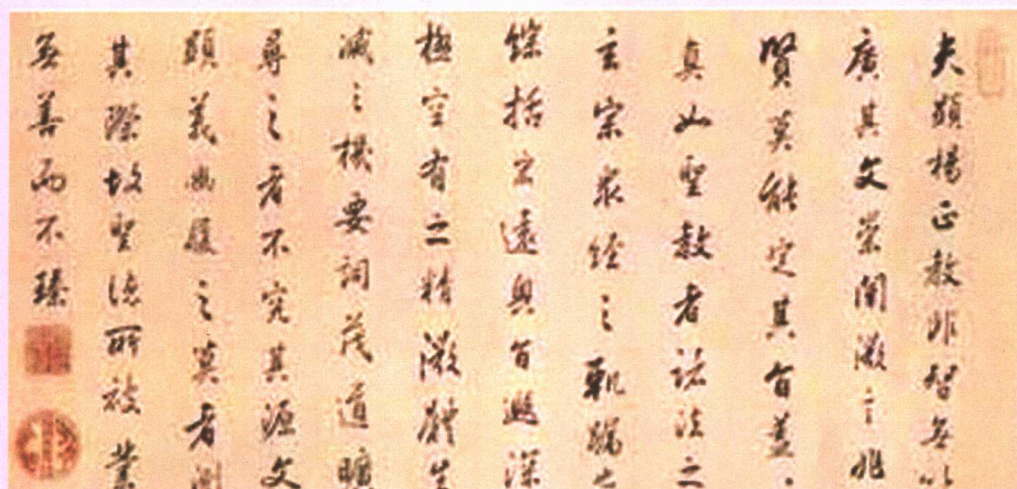 夫顯揚正教非智無以
廣其文崇闡微言非
賢莫能定其旨蓋
真如聖教者諸法之
玄宗眾經之軌躅
綜括宏遠奧旨遐深
極空有之精微體生
滅之機要詞茂道曠
尋之者不究其源文
顯義幽履之莫者測
其際故聖德所被業
無善而不臻